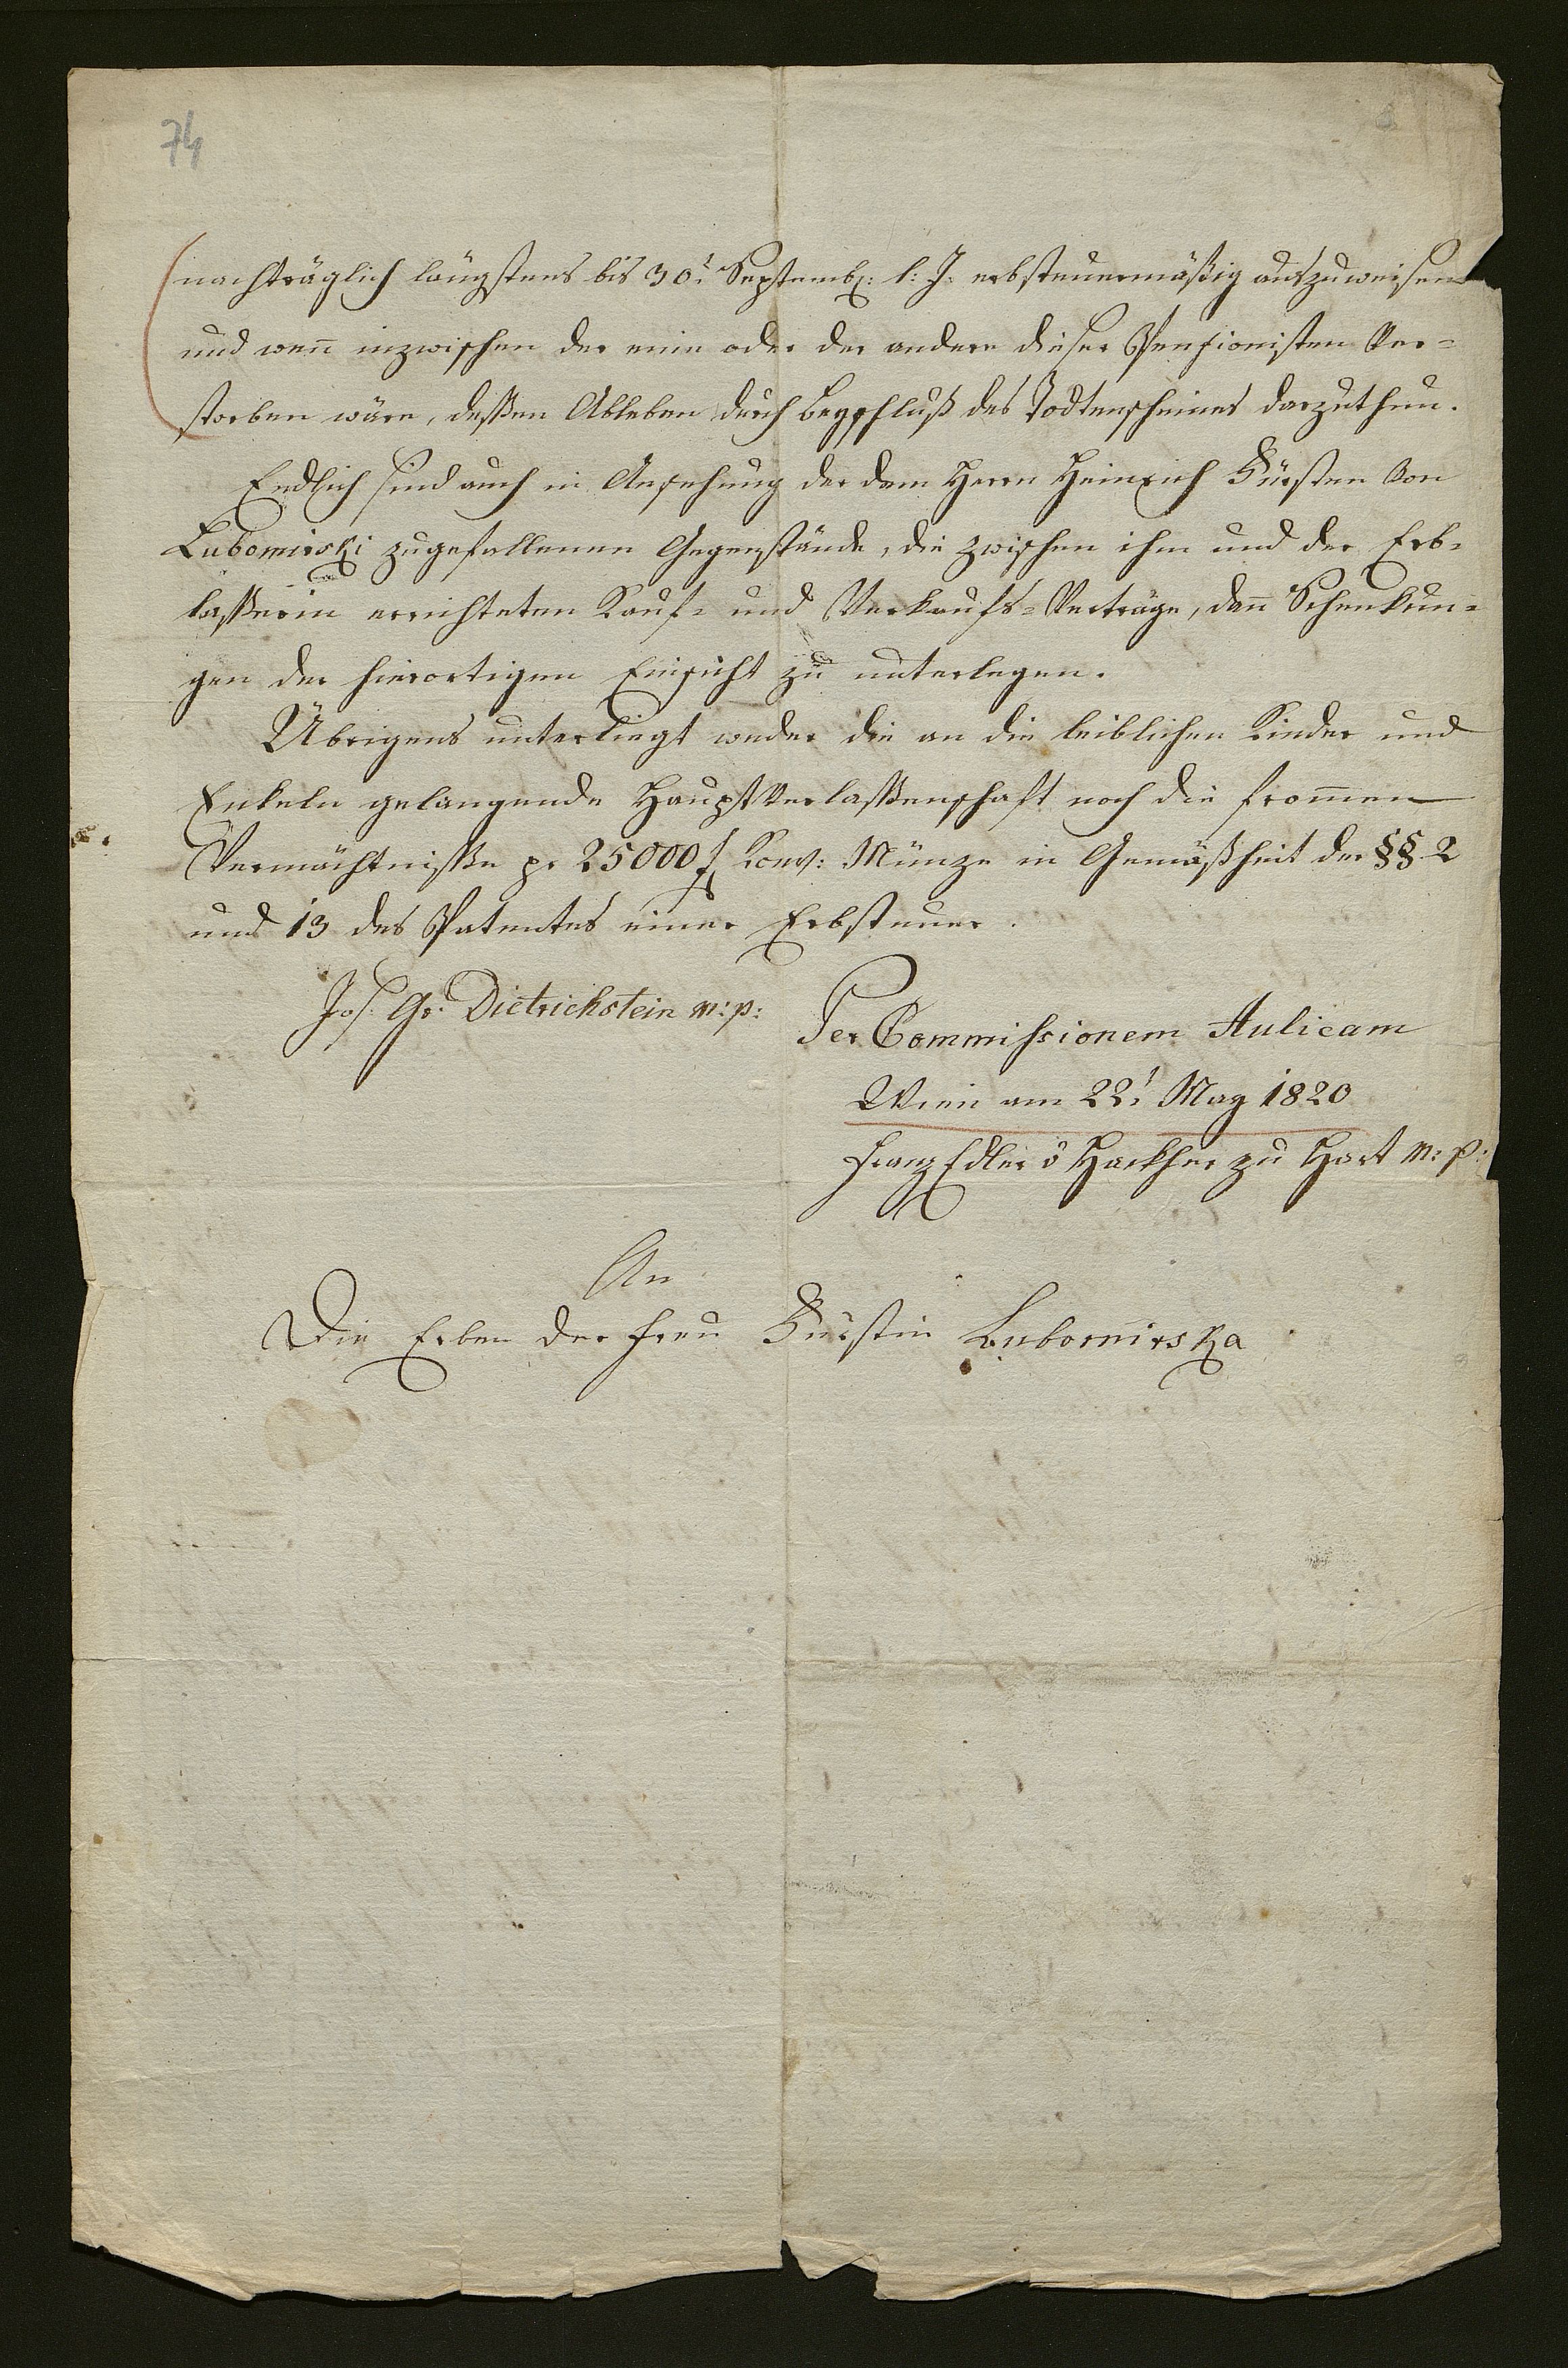 74
nachträglich längstens bis 30t Septemb: l: J: erbsteuermäßig auszuweisen
und wen̄ inzwischen der eine oder der andere dieser Pensionisten Ver=
storben wäre, deßen Ableben durch Beyschluß des Todtenscheines darzuthun.
Endlich sind auch in Ansehung der dem Herrn Heinrich Fürsten von
Lubomirski zugefallenen Gegenstände, die zwischen ihm und der Erb=
lasserin errichteten Kauf= und Verkaufs=Verträge, dan̄ Schenkun=
gen der hierortigen Einsicht zu unterlegen.
Übrigens unterliegt weder die an die leiblichen Kinder und
Enkeln gelangende Hauptverlassenschaft noch die from̄en
Vermächtnisse pr 25000 f Conv: Münze in Gemäßheit der §§ 2
und 13 des Patentes einer Erbsteuer.
Jos. Gr. Dietrichstein m:p:
Per Commissionem Aulicam
Wien am 22t May 1820
Franz Edler v Hackher zu Hart m: p:
An
Die Erben der Frau Fürstin Lubomirska